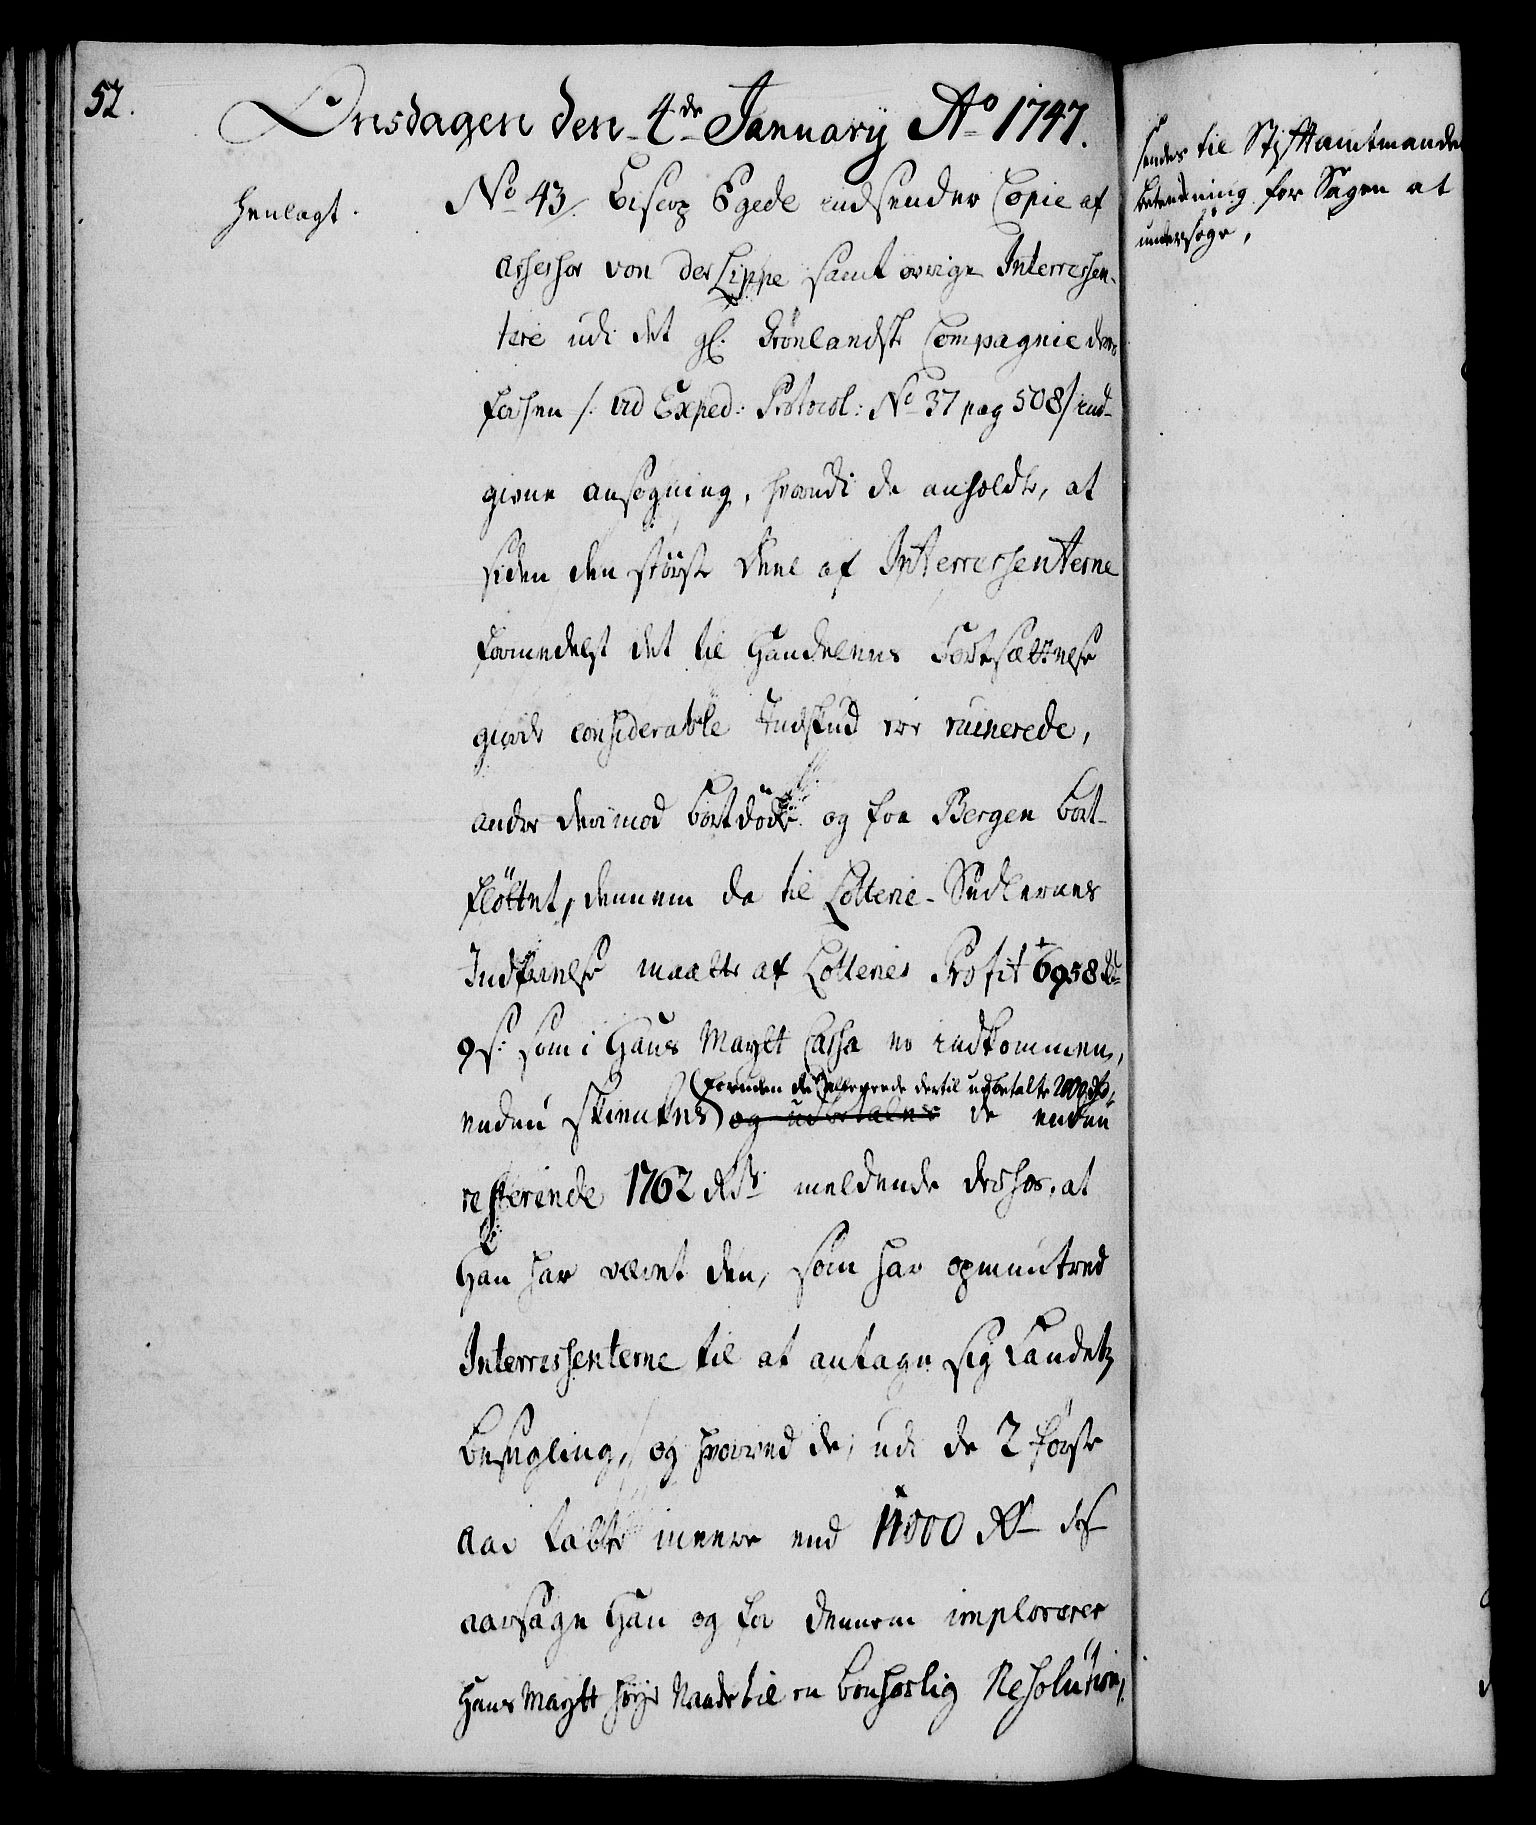 52.
Onsdagen den 4de January Ao 1747.
henlagt.
No 43/. Biscop Egede indsender Copie af
Assessor von der Lippe samt øvrige Interressen-
tere udi det gl. Grönlandske Compagnie deres
forhen /: vid Exped: Protocol: No 37 pag 508/ ind-
givne ansøgning, hvorudi de anholdt, at
siden den störste deel af Interressenterne
formedelst det til Handelens Fortsættelse
giorde considerable Indskud ere ruinerede,
andre derimod bortdöde og fra Bergen bort-
flöttet, dennem da til Lotterie-Sedlernes
Indfrielse maatte af Lotteries Profit 6958 Rd
9 s: som i Hans Maytt Cassa er indkommen,
endnu skienkes (foruden de allerrede dertil udbetalte 2000 Rd,
og udbetales de endnu
resterende 1762 Rdr meldende derhos, at
Han har været den, som har opmuntred
Interressenterne til at antage sig Landets
Besegling, og hvorved de, udi de 2 förste
aar tabte meere end 11000 Rdr
aarsage Han og for dennem implorerer
Hans Maytt höye Naade til en bönhörlig Resolution,
sendes til Stiftamtmanden
betenkning for Sagen at
undersøge,